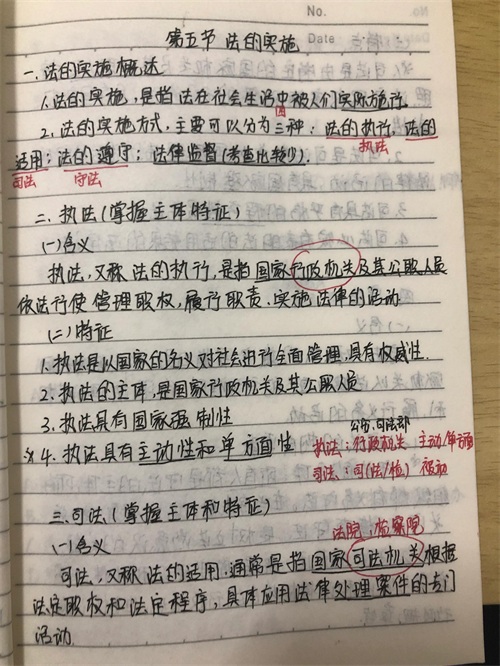 No.
Date
第五节 法的实施
一.法的实施概述
1.法的实施,是指法在社会生活中被人们实际施行.
四
2.法的实施方式,主要可以分为三种:法的执行,法的
执法
适用;法的遵守;法律监督(考查比较少).
司法 守法
二.执法(掌握主体特征)
(一)含义
执法,又称法的执行,是指国家行政机关及其公职人员
依法行使管理职权,履行职责、实施法律的活动
(二)特征
1.执法是以国家的名义对社会进行全面管理,具有权威性.
2.执法的主体,是国家行政机关及其公职人员
3.执法具有国家强制性
公安.司法部
4.执法具有主动性和单方面性
执法:行政机关 主动/单方面
司法:司(法/检) 被动
三.司法(掌握主体和特征)
法院,检察院
(一)含义
司法,又称法的适用,通常是指国家司法机关根据
法定职权和法定程序,具体应用法律处理案件的专门
活动.